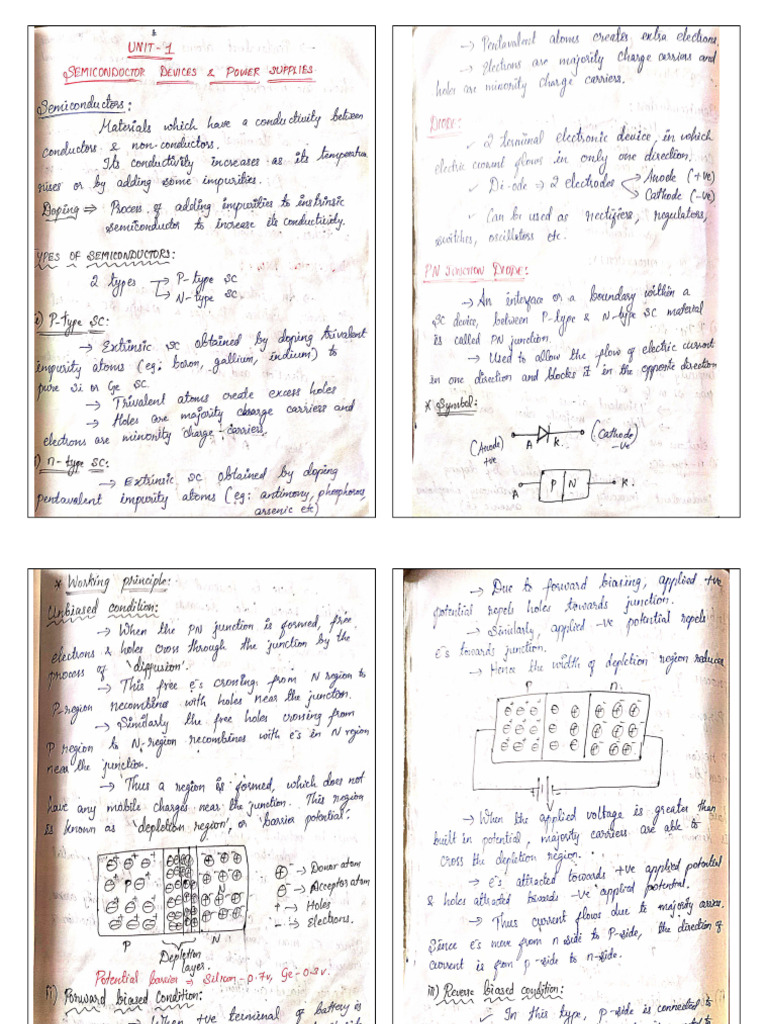 UNIT-1
SEMICONDOCTOR DEVICES & POWER SUPPLIES
Semiconductors:
Materials which have a conductivity between
conductors & non-conductors.
Its conductivity increases as its temperatu
rises or by adding some impurities.
Doping ⇒ Process of adding impurities to instrinsic
semiconductor to increase its conductivity.
YPES OF SEMICONDUCTORS:
2 types → P-type SC
→ N-type SC
i) P-type SC:
→ Extrinsic SC obtained by doping trivalent
impurity atoms (eg: boron, gallium, indium) to
pure Si or Ge SC.
→ Trivalent atoms create excess holes
→ Holes are majority charge carriers and
electrons are minority charge carriers.
i) n-type SC:
→ Extrinsic SC obtained by doping
pentavalent impurity atoms (eg: antimony, phosphorus,
arsenic etc)
→ Pentavalent atoms creates extra electrons.
→ Electrons are majority charge carriers and
holes are minority charge carriers.
DIODE:
✓ 2 terminal electronic device, in which
electric current flows in only one direction.
✓ Di-ode ⇒ 2 electrodes
Anode (+ve)
Cathode (-ve)
✓ Can be used as rectifiers, regulators,
switches, oscillators etc.
PN JUNCTION DIODE:
→ An interface or a boundary within a
SC device, between P-type & N-type SC material
is called PN junction.
→ Used to allow the flow of electric current
in one direction and blocks it in the opposite direction
* Symbol:
(Anode) +ve A K. (Cathode) -ve
A P N K.
* Working principle:
Unbiased condition:
→ When the PN junction is formed, free
electrons & holes cross through the junction by the
process of 'diffusion'.
→ This free e⁻s crossing from N region to
P-region recombines with holes near the junction.
→ Similarly the free holes crossing from
P region to N-region recombines with e⁻s in N region
near the junction.
→ Thus a region is formed, which does not
have any mobile charges near the junction. This region
is known as 'depletion region', or 'barrier potential'.
P N
⊕ → Donor atom
⊖ → Acceptor atom
+ → Holes
- → Electrons.
P Depletion layer. N
Potential barrier → Silicon - 0.7v, Ge - 0.3v.
ii) Forward biased Condition:
→ When +ve terminal of battery is
→ Due to forward biasing, applied +ve
potential repels holes towards junction.
→ Similarly, applied -ve potential repels
e⁻s towards junction.
→ Hence the width of depletion region reduces
P n
→ When the applied voltage is greater than
built in potential, majority carriers are able to
cross the depletion region.
→ e⁻s attracted towards +ve applied potential
& holes attracted towards -ve applied potential.
→ Thus current flows due to majority carriers.
Since e⁻s move from n side to P-side, the direction of
current is from p-side to n-side.
iii) Reverse biased condition:
✓ In this type, p-side is connected to